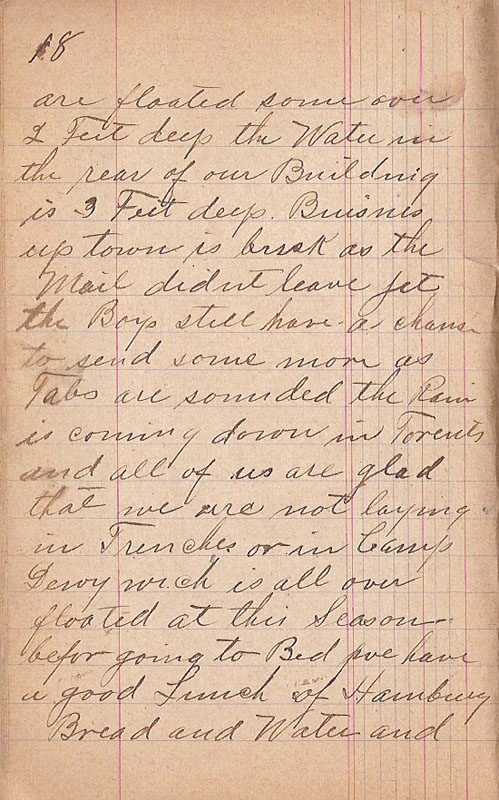 18
are floated some over
2 Feet deep the Water in
the rear of our Buildnig
is 3 Feet deep. Buisnies
up town is brusk as the
Mail didnt leave jet
the Boys still have a chanse
to send some more as
Tabs are sounded the Rain
is coming down in Torents
and all of us are glad
that we are not laying
in Trenches or in Camp
Dewy wich is all over
floated at this Season
befor going to Bed we have
a good Lunch of Hamburg
Bread and Water and